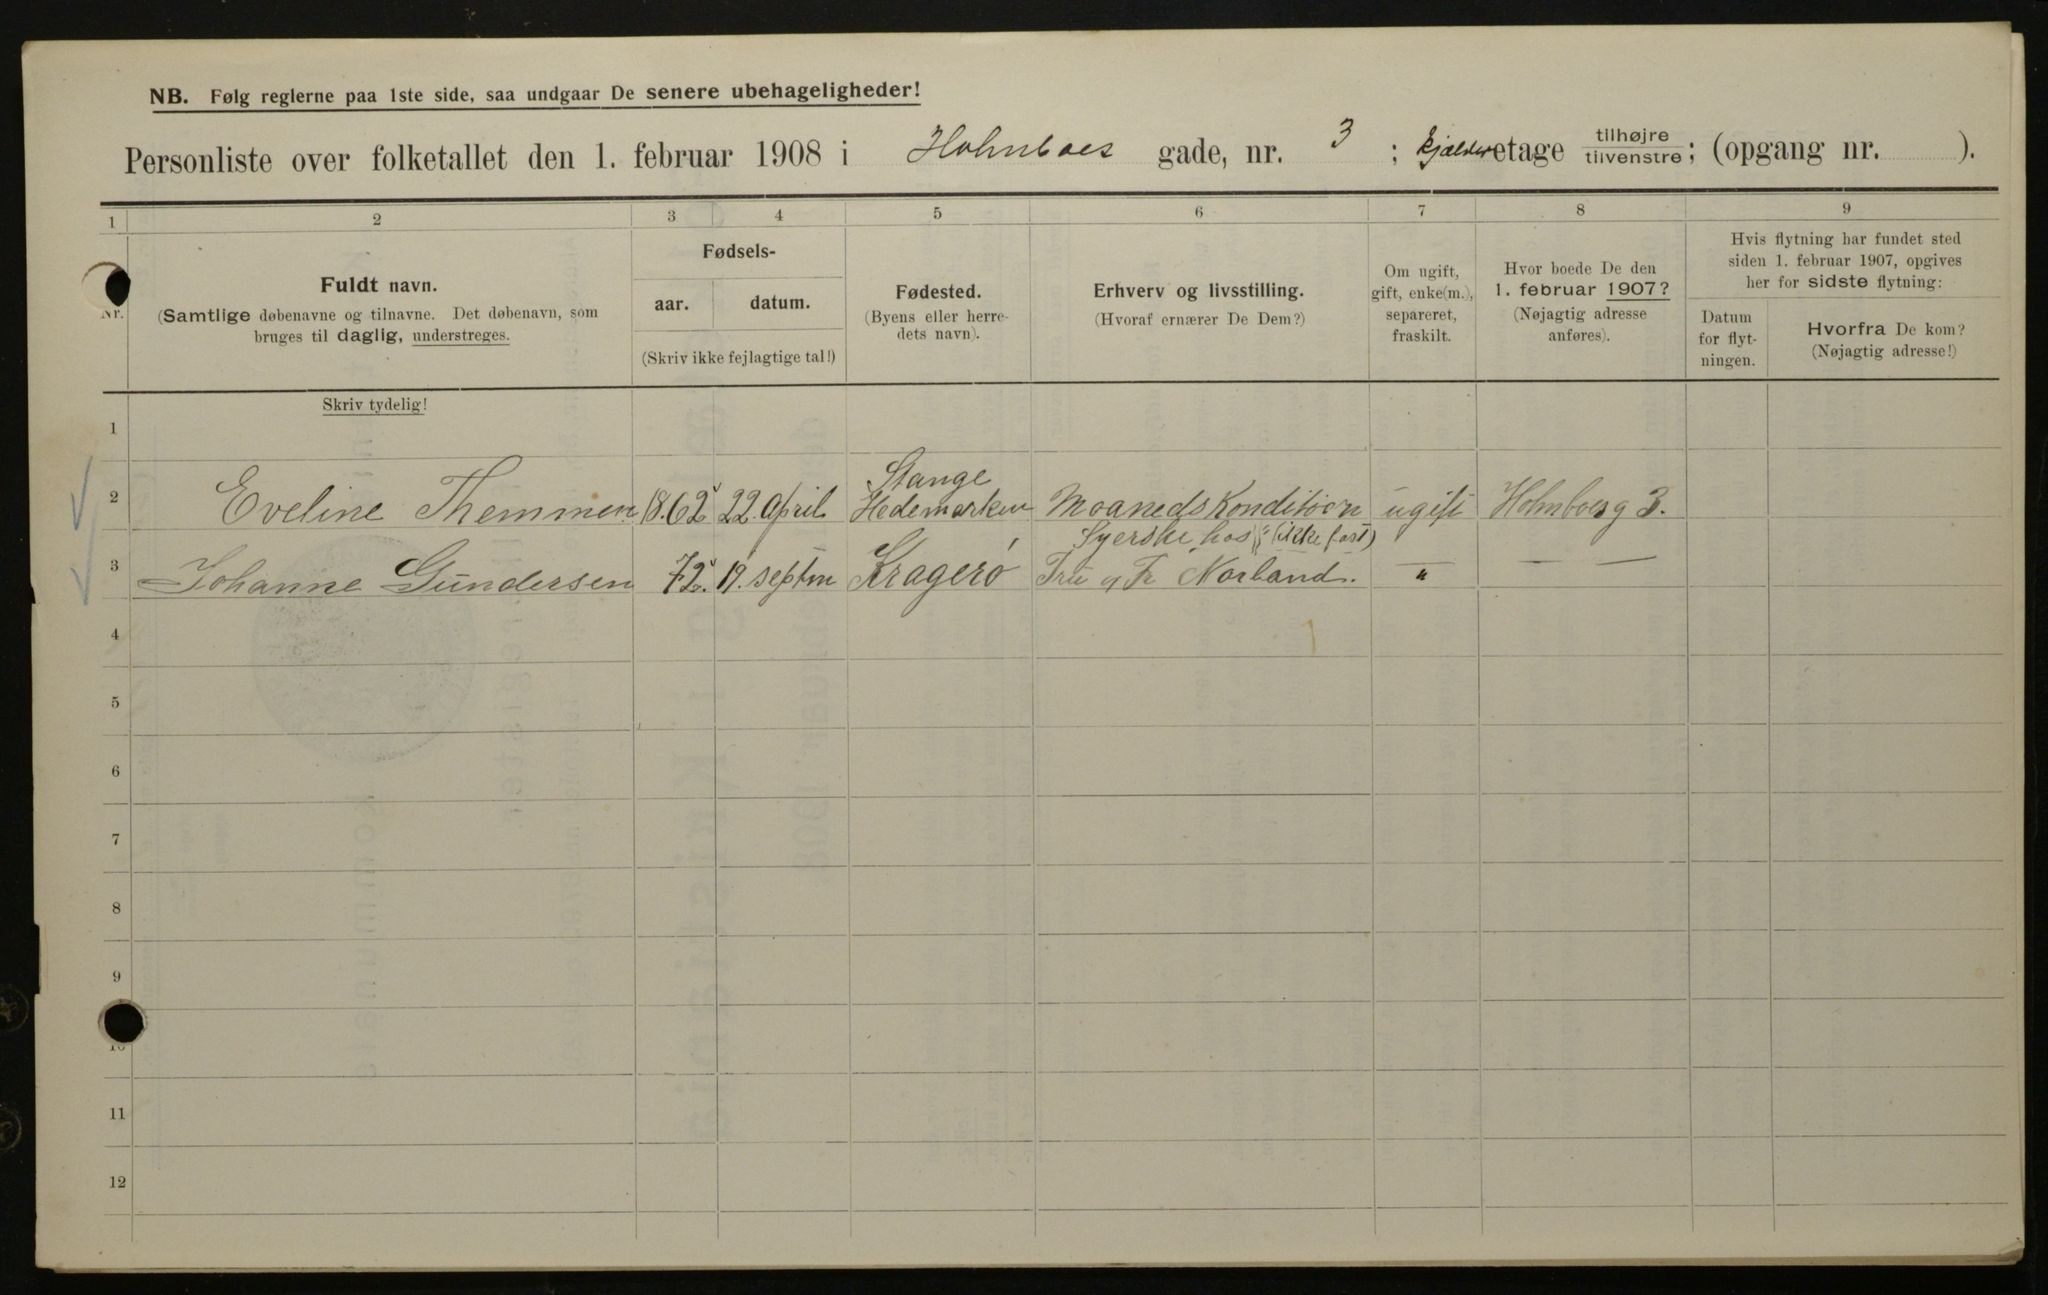 NB. Følg reglerne paa 1ste side, saa undgaar De senere ubehageligheder!
Personliste over folketallet den 1. februar 1908 i Holmboes gade, nr. 3 ; kjælderetage tilhøjre tilvenstre; (opgang nr. ).
1 2 3 4 5 6 7 8 9
Nr.
Fuldt navn.
(Samtlige døbenavne og tilnavne. Det døbenavn, som
bruges til daglig, understreges.
Fødsels-
aar. datum.
(Skriv ikke fejlagtige tal!)
Fødested.
(Byens eller herre-
dets navn).
Erhverv og livsstilling.
(Hvoraf ernærer De Dem?)
Om ugift,
gift, enke(m.),
separeret,
fraskilt.
Hvor boede De den
1. februar 1907?
(Nøjagtig adresse
anføres).
Hvis flytning har fundet sted
siden 1. februar 1907, opgives
her for sidste flytning:
Datum
for flyt-
ningen.
Hvorfra De kom?
(Nøjagtig adresse!)
Skriv tydelig!
1
Stange
2 Eveline Themmen 1862 22 april Hedemarken Maaneds Konditioen ugift Holmboesg 3.
Syerske hos (ikke fast)
3 Johanne Gundersen 72. 19. septm Kragerø Fru og Fr Norland. " — — —
4
5
6
7
8
9
10
11
12